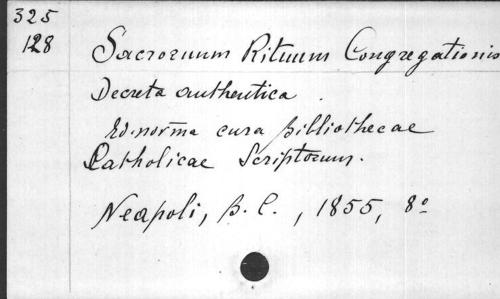 325
128
Sacrorum Rituum Congregationis
Decreta authentica.
Ed. norma cura Bibliothecae
Catholicae Scriptorum.
Neapoli, B. C., 1855, 8º